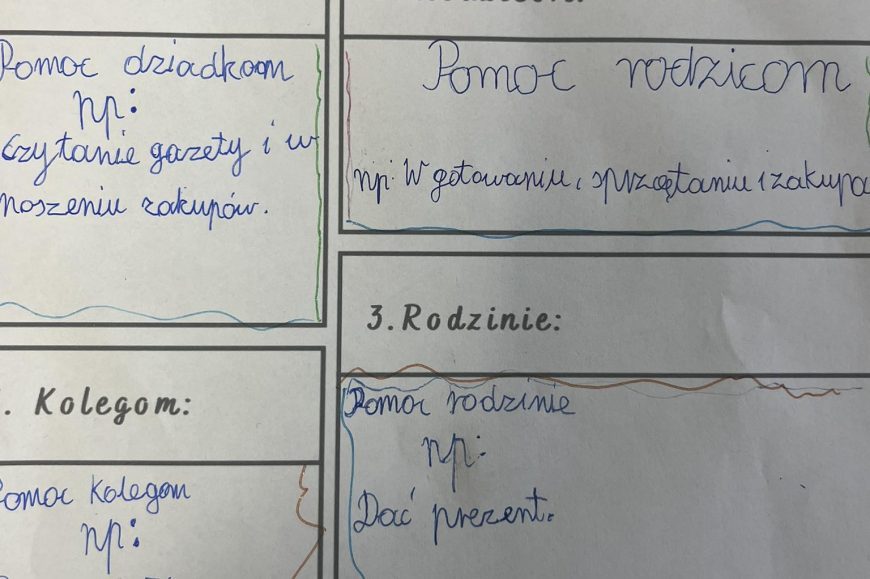 Pomoc dziadkom
np:
Czytanie gazety i w
noszeniu zakupów.
Pomoc rodzicom
np: W gotowaniu, sprzątaniu i zakupa
3. Rodzinie:
Pomoc rodzinie
np:
Dać prezent.
. Kolegom:
Pomoc kolegom
np: